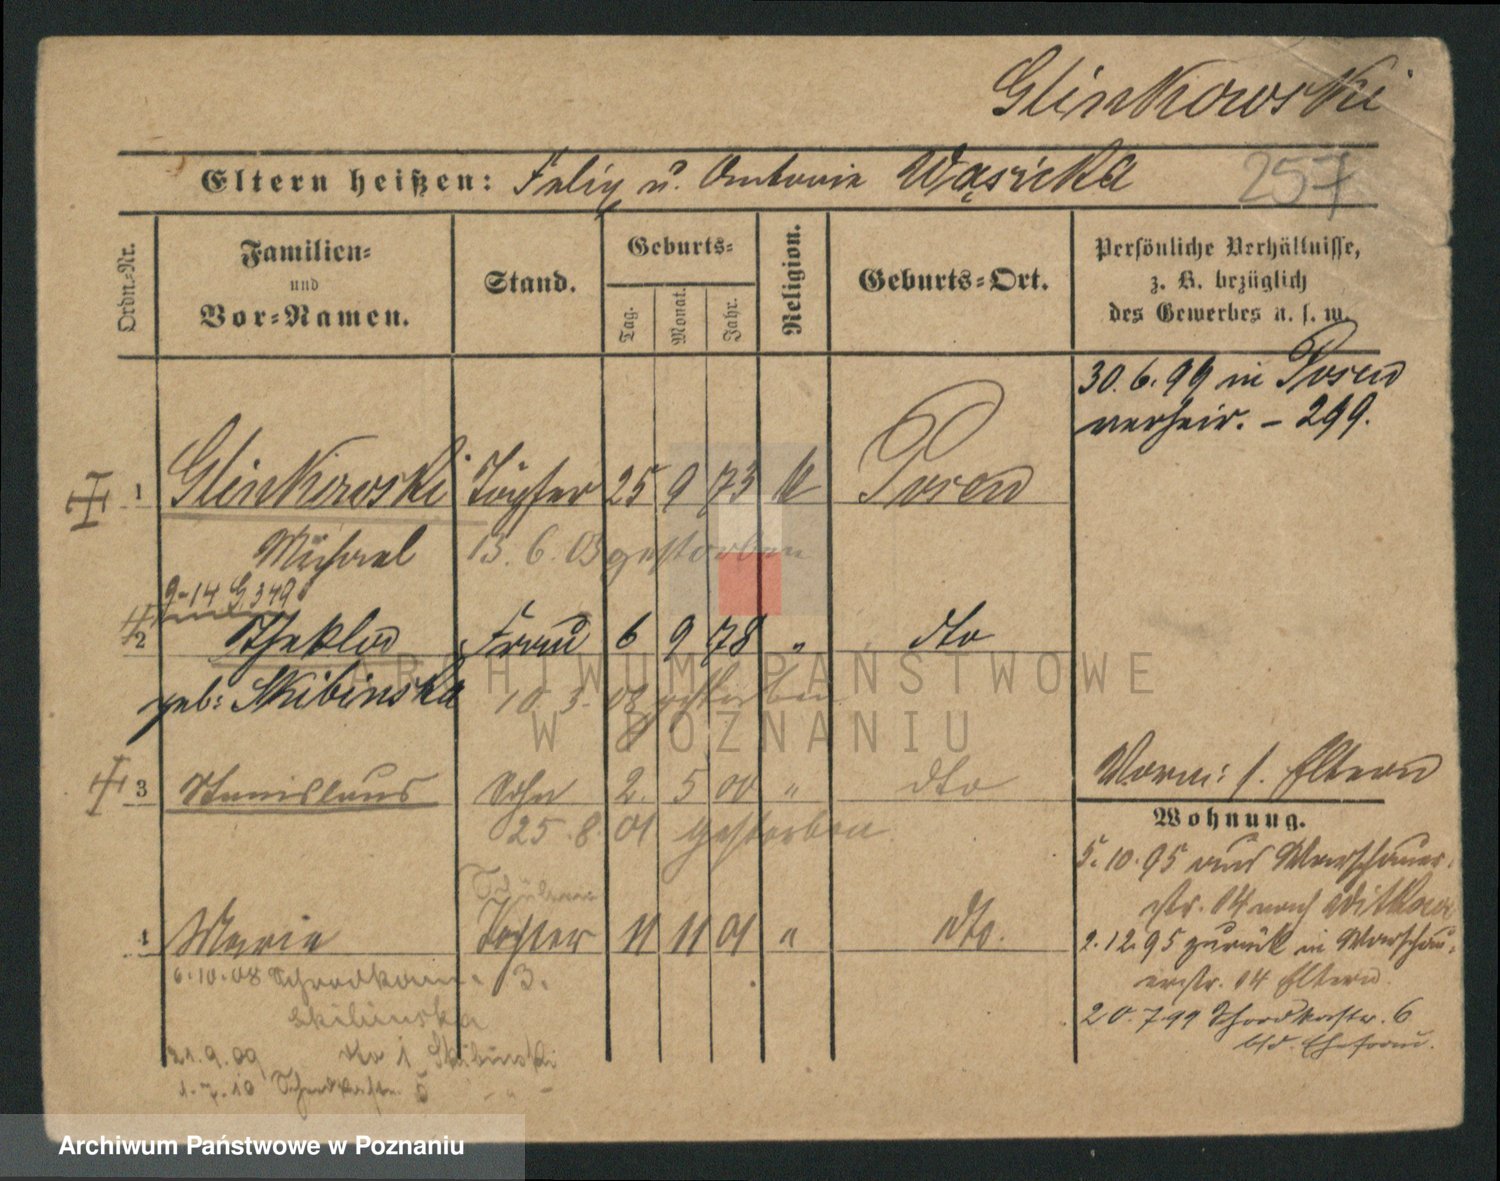 Glinkowski
Eltern heißen: Felix u. Antonie Wąsicka
257
Ordn.-Nr.
Familien-
und
Vor-Namen.
Stand.
Geburts-
Tag.
Monat.
Jahr.
Religion.
Geburts-Ort.
Persönliche Verhältnisse,
z. B. bezüglich
des Gewerbes u. s. w.
30.6.99 in Posen
verheir. - 299.
1 Glinkowski Töpfer 25 9 73 k Posen
Michael 13. 6. 03 gestorben
9-14 G 349
2 Thekla Frau 6 9 78 " dto
geb: Skibinska 10. 3. 08 gestorben
3 Stanislaus Sohn 2. 5 00 " dto
25. 8. 01 gestorben
Schülerin
4 Maria Tochter 11 11 01 " dto.
6.10.08 Schrodkaer 3.
Skibinska
21.9.09 dto 1 Skibinski
1.7.10 Schrodkastr. 5 - " -
Vorm: s. Eltern
Wohnung.
5.10.95 aus Warschauer-
str. 14 nach
2.12.95 zurück in Warschau-
erstr. 14 Eltern.
20.7.99 Schrodkastr. 6
bei Ehefrau.
ARCHIWUM PAŃSTWOWE
W POZNANIU
Archiwum Państwowe w Poznaniu